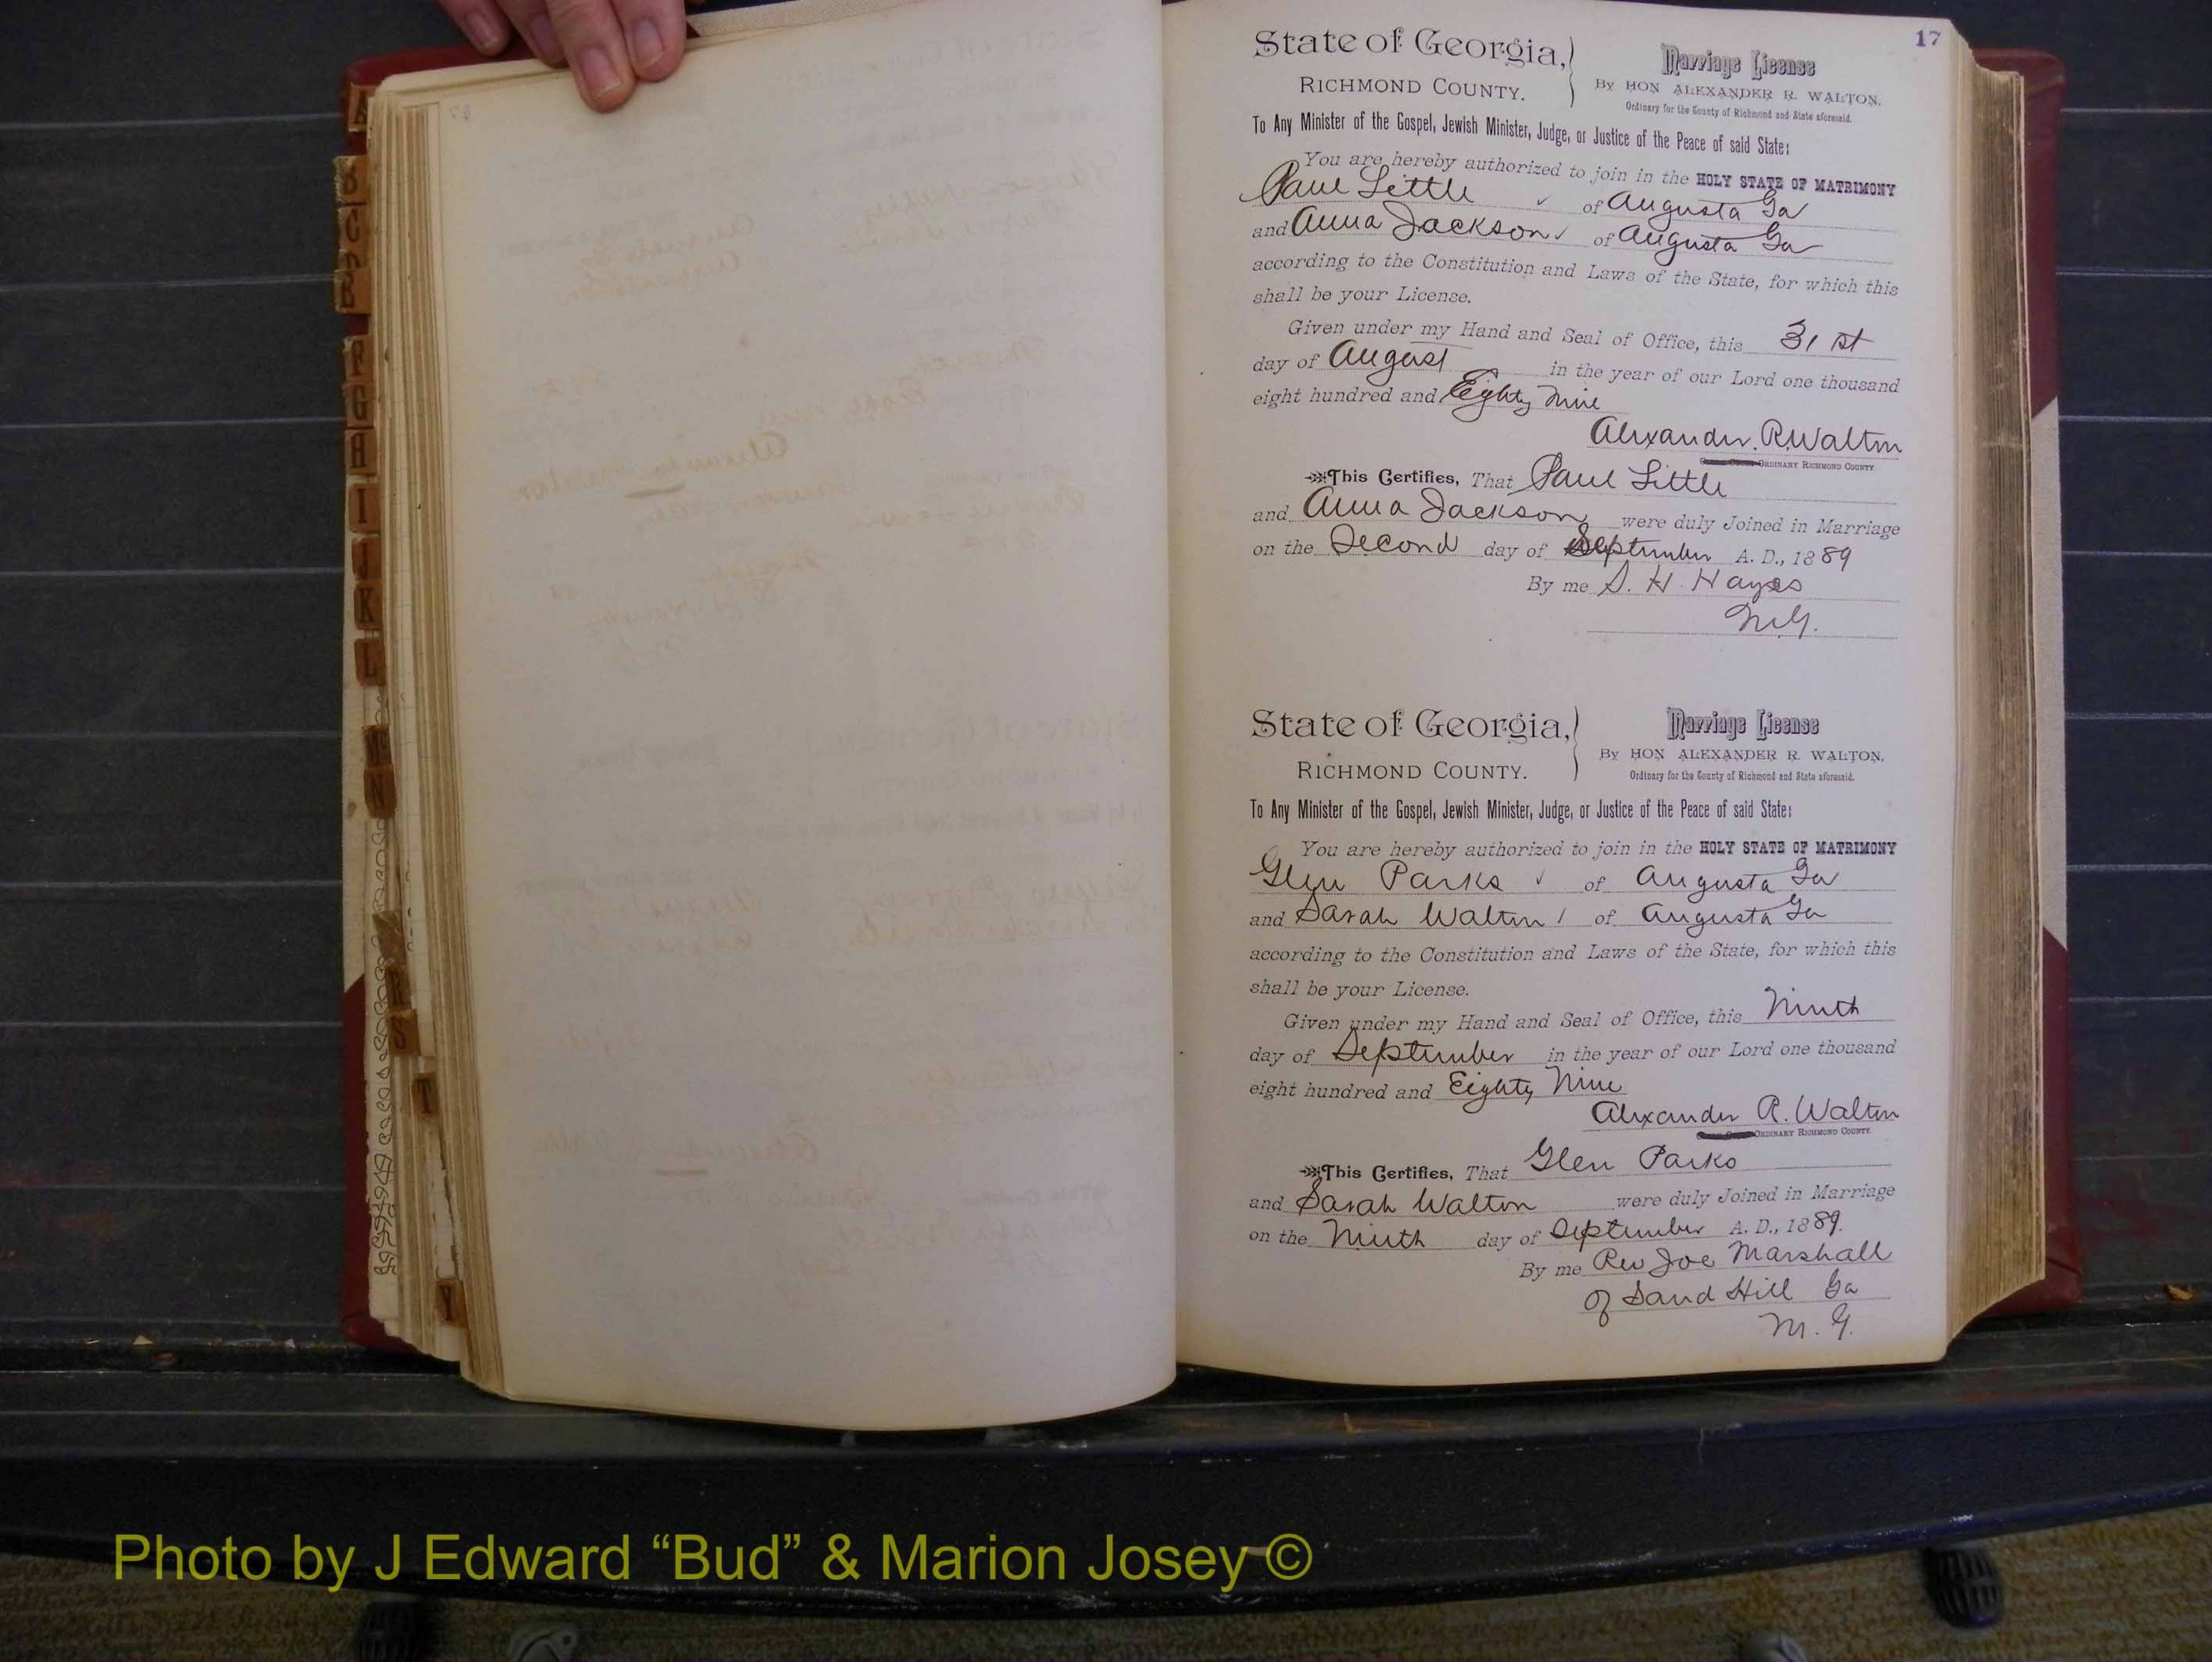 17
State of Georgia,
RICHMOND COUNTY.
Marriage License
By HON ALEXANDER R. WALTON,
Ordinary for the County of Richmond and State aforesaid.
To Any Minister of the Gospel, Jewish Minister, Judge, or Justice of the Peace of said State:
You are hereby authorized to join in the HOLY STATE OF MATRIMONY
Paul Little ✓ of Augusta Ga
and Anna Jackson ✓ of Augusta Ga
according to the Constitution and Laws of the State, for which this
shall be your License.
Given under my Hand and Seal of Office, this 31st
day of August in the year of our Lord one thousand
eight hundred and Eighty Nine
Alexander R Walton
ORDINARY RICHMOND COUNTY
This Certifies, That Paul Little
and Anna Jackson were duly Joined in Marriage
on the Second day of September A. D., 1889
By me S. H. Hayes
M.G.
State of Georgia,
RICHMOND COUNTY.
Marriage License
By HON ALEXANDER R. WALTON,
Ordinary for the County of Richmond and State aforesaid.
To Any Minister of the Gospel, Jewish Minister, Judge, or Justice of the Peace of said State:
You are hereby authorized to join in the HOLY STATE OF MATRIMONY
Glen Parks ✓ of Augusta Ga
and Sarah Walton / of Augusta Ga
according to the Constitution and Laws of the State, for which this
shall be your License.
Given under my Hand and Seal of Office, this Ninth
day of September in the year of our Lord one thousand
eight hundred and Eighty Nine
Alexander R. Walton
ORDINARY RICHMOND COUNTY.
This Certifies, That Glen Parks
and Sarah Walton were duly Joined in Marriage
on the Ninth day of September A. D., 1889.
By me Rev Joe Marshall
of Sand Hill Ga
M. G.
A
B
C
F
G
H
I
J
K
L
N
R
S
T
Y
Photo by J Edward “Bud” & Marion Josey ©